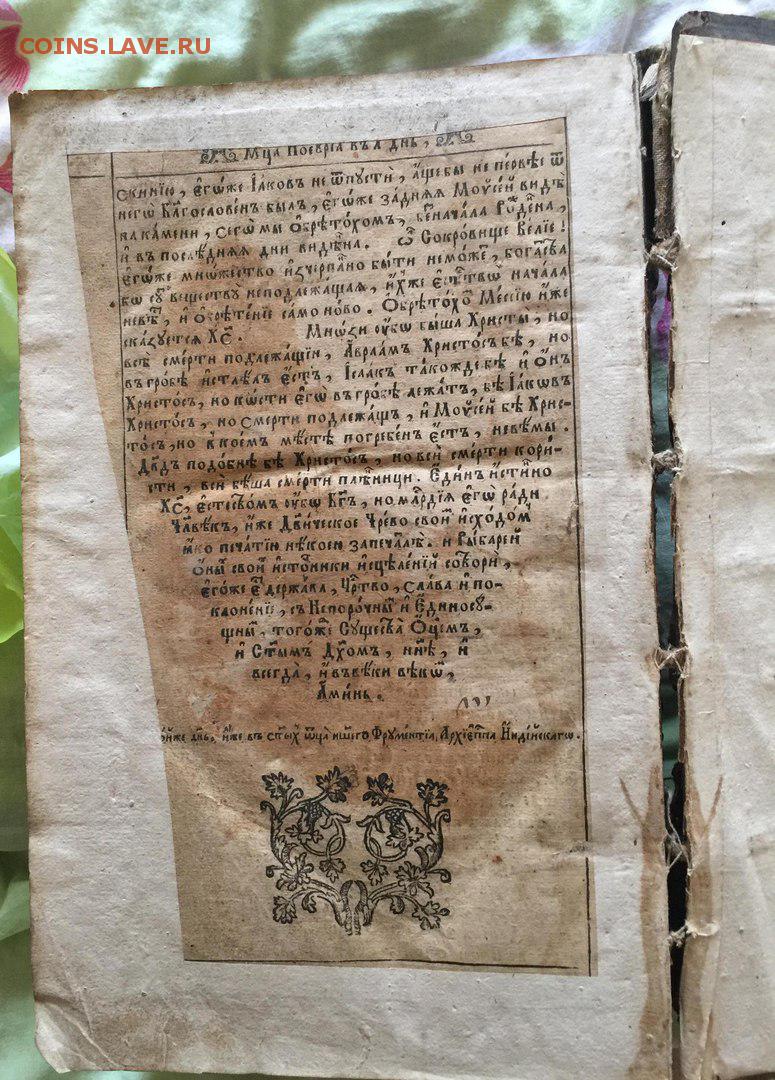 COINS.LAVE.RU
Мц҃а Ноеврїа въ л҃ днь,
скинїю, є҆гѡ́же І҆а́ковъ не ѿпустѝ, а҆́щебы не пе́рвѣе ѿ
негѡ̀ Бл҃гослове́нъ былъ, є҆гѡ́же за́дняя Моѷсе́й ви́дѣ
на ка́мени, сего̀ мы̀ ѡ҆брѣто́хомъ, Безнача́ла Рожде́нна,
и҆ въ послѣ́дняя дни ви́дѣнна. Ѽ Сокро́вище Ве́лїе!
є҆гѡ́же мно́жество и҆зчерпа́но бы́ти не мо́же, бога́тства
бо су́ть веществу̀ неподлежа́щая, и҆́хже є҆стество̀ нача́ла
невѣ́сть, и҆ ѡ҆брѣте́нїе само̀ но́во. Ѡ҆брѣто́хомъ Мессі́ю и҆́же
ска́зуется Хс҃. Мно́зи ᲂу҆́бѡ бы́ша Христы̀, но
всѝ сме́рти подлежа́щїи, А҆враа́мъ Христо́съ бѣ̀, но
въ гро́бѣ и҆стлѣ́лъ є҆́сть, І҆саа́къ та́кожде бѣ̀ и҆ о҆́нъ
Христо́съ, но ко́сти є҆гѡ̀ въ гро́бѣ лежа́тъ, бѣ̀ І҆а́кѡвъ
Христо́съ, но сме́рти подлежа́щъ, и҆ Моѷсе́й бѣ̀ Хрис-
то́съ, но в̾ ко́емъ мѣ́стѣ погребе́нъ є҆́сть, невѣ́мы.
Дв҃дъ подо́бнѣ бѣ̀ Христо́съ, но всѝ сме́рти коры́-
сти, всѝ бѣ́ша сме́рти плѣ́нницы. Є҆ди́нъ и҆́стинно
Хс҃, є҆стество́мъ ᲂу҆́бѡ Бг҃ъ, но мл҃рдїя є҆гѡ̀ ра́ди
Чл҃вѣ́къ, и҆́же Дв҃и́ческое Чре́во свои́мъ и҆схо́домъ
ꙗ҆́ко печа́тїю нѣ́коею запечатлѣ̀. и҆ Ры́барей
Ѻ҆́ныѧ своѧ̑ и҆сто́чники и҆сцѣле́нїй сотворѝ,
є҆гѡ́же є҆́сть держа́ва, Ца́рство, сла́ва и҆ по-
клоне́нїе, съ Непоро́чнымъ и҆ Є҆диносу́-
щнымъ, тогѡ́же Существа̀ Ѻ҆ц҃е́мъ,
и҆ Ст҃ымъ Дх҃омъ, нн҃ѣ, и҆
всегда̀, и҆ въ вѣ́ки вѣкѡ́въ,
А҆ми́нь.
то́йже днь, и҆́же въ ст҃ы́хъ ѻ҆ц҃а̀ на́шегѡ Фрументі́а, А҆рхїєпⷭ҇па И҆нді́йскагѡ.